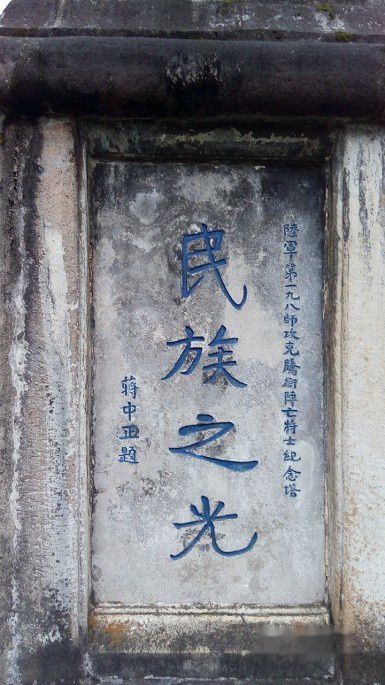 陸軍第一九八師攻克騰衝陣亡將士紀念塔
民族之光
蔣中正題